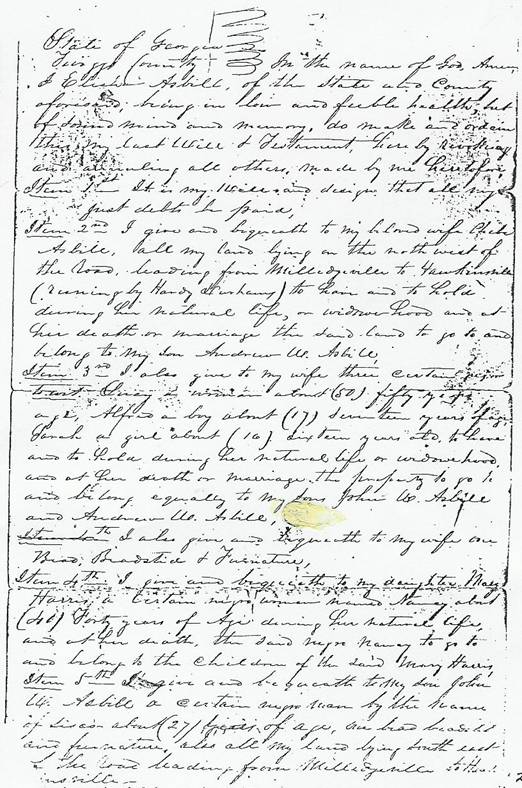 State of Georgia
Twiggs County In the name of God Amen
I Elisha Asbill, of the State and County
aforesaid, being in low and feeble health, but
of sound mind and memory, do make and ordain
this my last Will & Testament, hereby revoking
and annulling all others, made by me heretofore
Item 1st It is my Will and design that all my
just debts be paid,
Item 2nd I give and bequeath to my beloved wife
Asbill, all my land lying on the north west of
the Road, leading from Milledgeville to Hawkinsville
(running by Hardy Durhams) to have and to hold
during her natural life, or widowhood and at
her death or marriage the said land to go to and
belong to my Son Andrew W. Asbill,
Item 3rd I also give to my wife three certain negro
to wit a woman about (50) fifty years
age, Alfred a boy about (17) Seventeen years of age
Sarah a girl about (16) sixteen years old, to have
and to hold during her natural life or widowhood,
and at her death or marriage, the property to go to
and belong equally to my Sons John W. Asbill
and Andrew W. Asbill,
I also give and bequeath to my wife one
Bead, Beadstid & Furnature,
Item 4th I give and bequeath to my daughter Mary
Harris, a certain negro woman named Nancy about
Forty years of Age during her natural life,
and at her death, the said negro Nancy to go to
and belong to the children of the said Mary Harris,
Item 5th I give and bequeath to my Son John
W. Asbill a certain negro man by the name
of about (27) years of age, one bead beadstid
and furnature, also all my land lying South east
of the road leading from Milledgeville to Hawk
insville